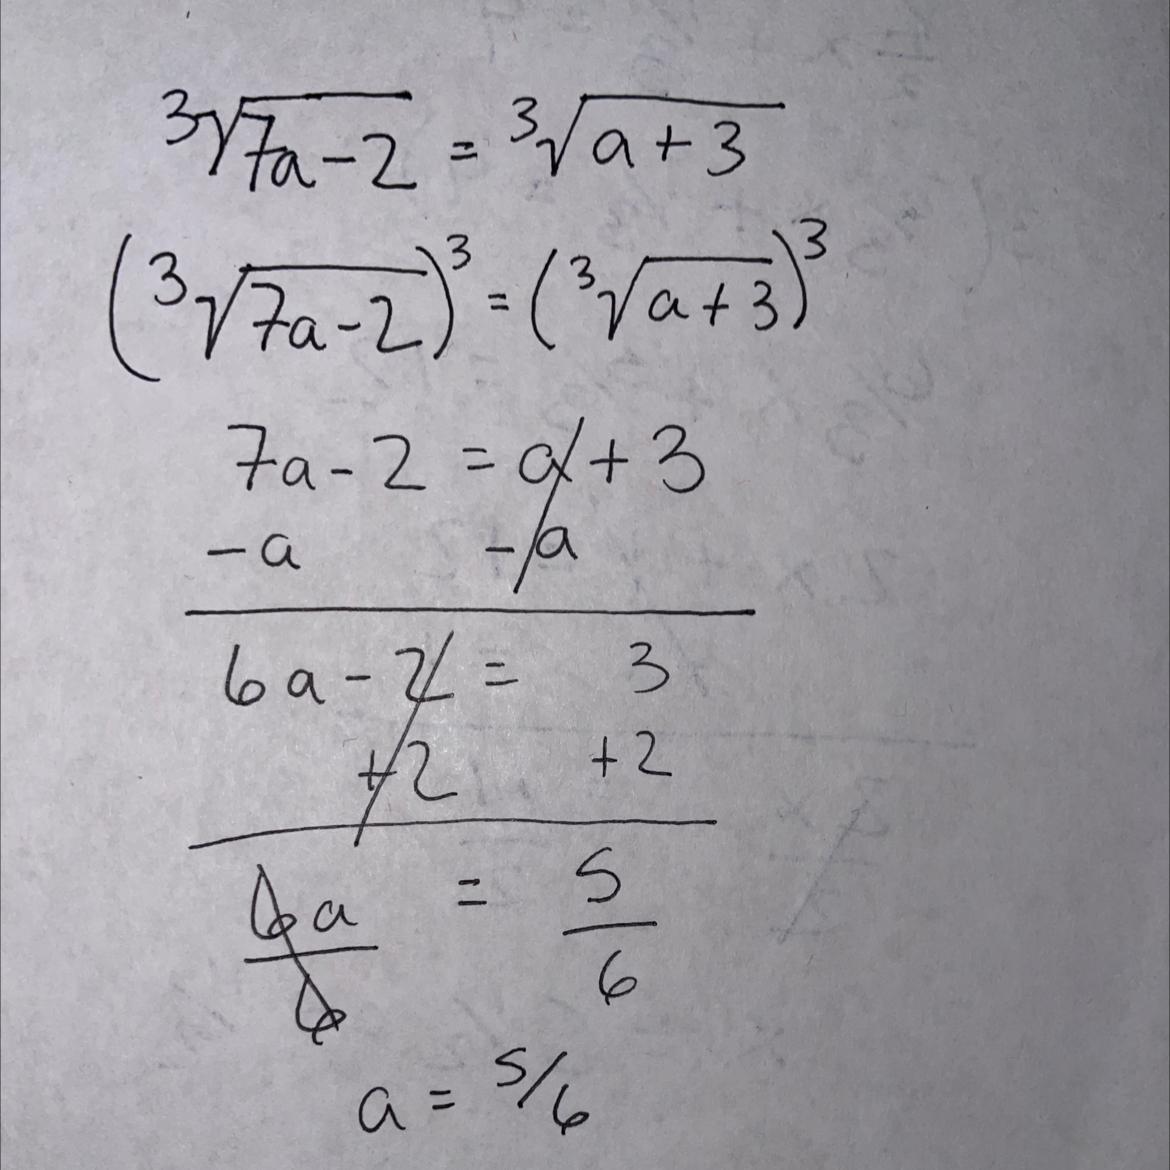 ³√7a-2 = ³√a+3
(³√7a-2)³ = (³√a+3)³
7a-2 = a+3
-a -a
6a-2 = 3
+2 +2
6a/6 = 5/6
a = 5/6